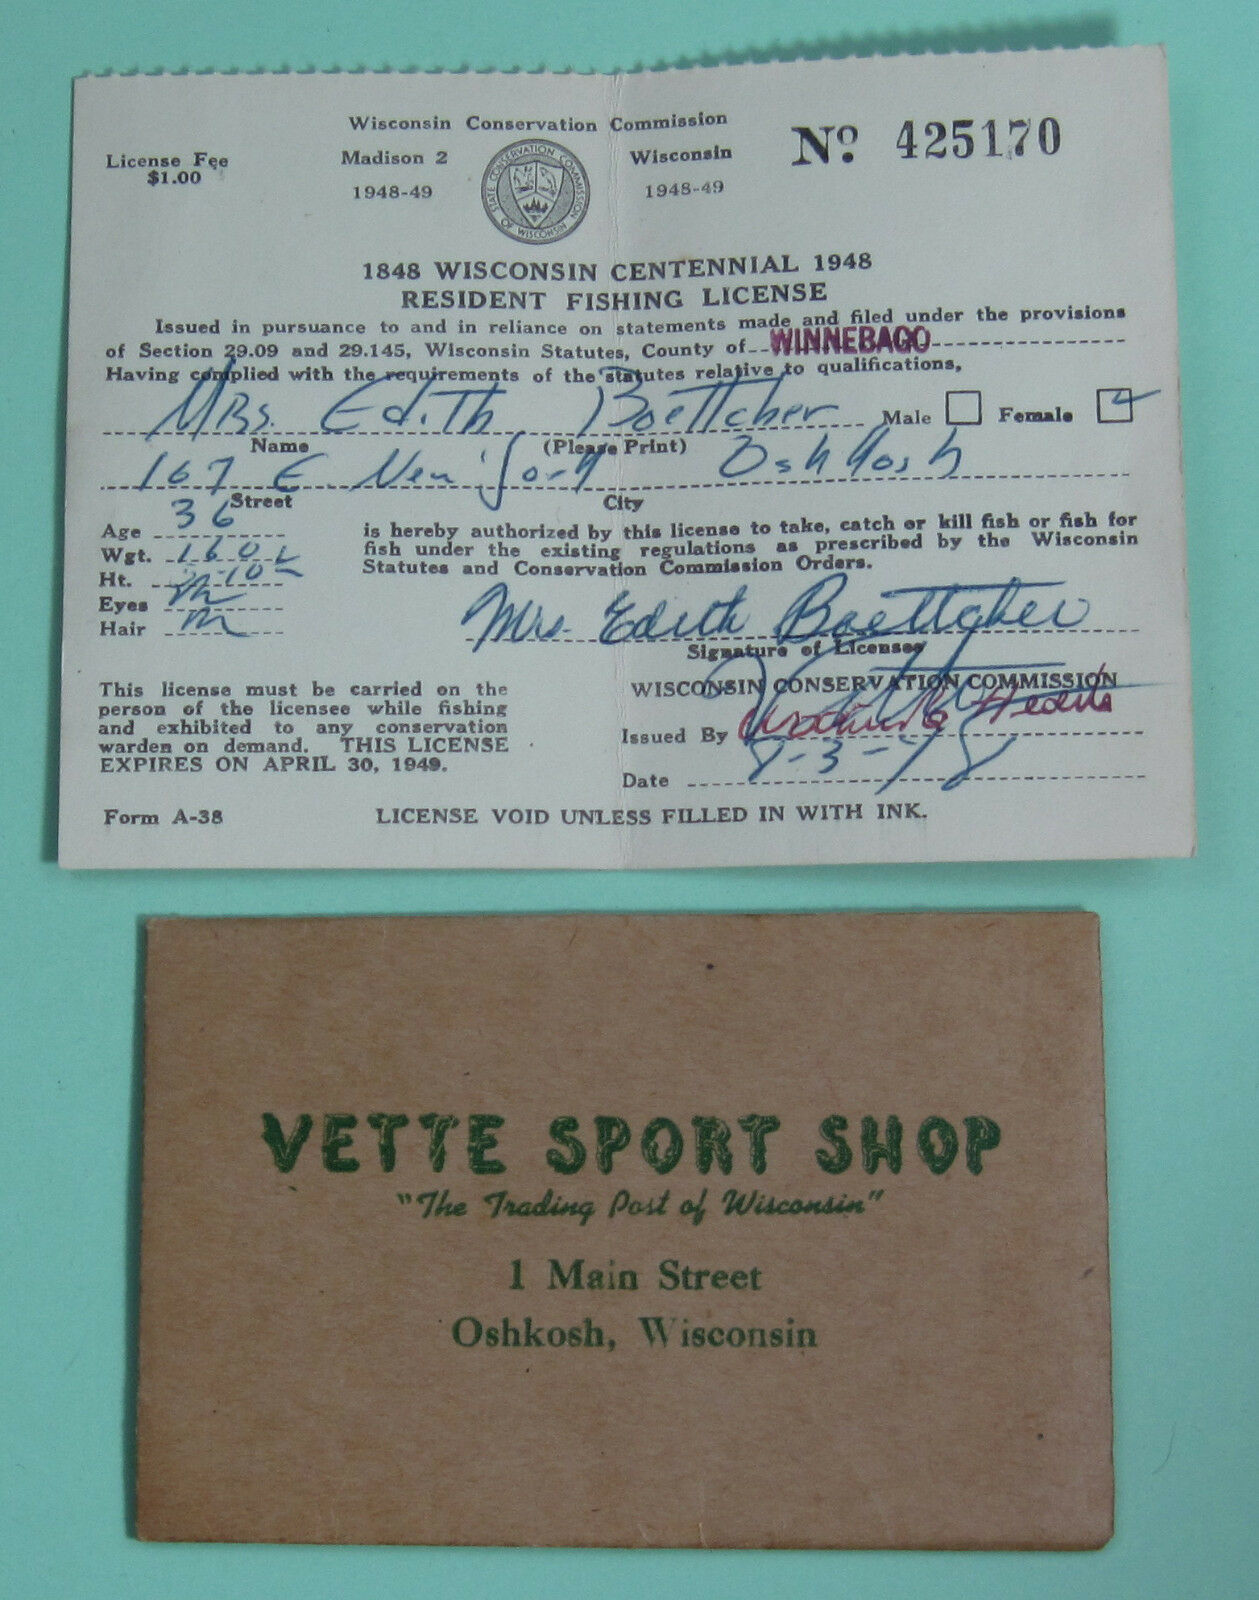 Wisconsin Conservation Commission
License Fee
$1.00
Madison 2
Wisconsin
1948-49
1948-49
No. 425170
STATE CONSERVATION COMMISSION OF WISCONSIN
1848 WISCONSIN CENTENNIAL 1948
RESIDENT FISHING LICENSE
Issued in pursuance to and in reliance on statements made and filed under the provisions
of Section 29.09 and 29.145, Wisconsin Statutes, County of WINNEBAGO
Having complied with the requirements of the statutes relative to qualifications,
Mrs. Edith Boettcher Male Female
Name (Please Print)
167 E. New York Oshkosh
Street City
Age 36
Wgt. 160
Ht.
Eyes
Hair
is hereby authorized by this license to take, catch or kill fish or fish for
fish under the existing regulations as prescribed by the Wisconsin
Statutes and Conservation Commission Orders.
Mrs. Edith Boettcher
Signature of Licensee
This license must be carried on the
person of the licensee while fishing
and exhibited to any conservation
warden on demand. THIS LICENSE
EXPIRES ON APRIL 30, 1949.
WISCONSIN CONSERVATION COMMISSION
Issued By
Date
Form A-38
LICENSE VOID UNLESS FILLED IN WITH INK.
VETTE SPORT SHOP
"The Trading Post of Wisconsin"
1 Main Street
Oshkosh, Wisconsin